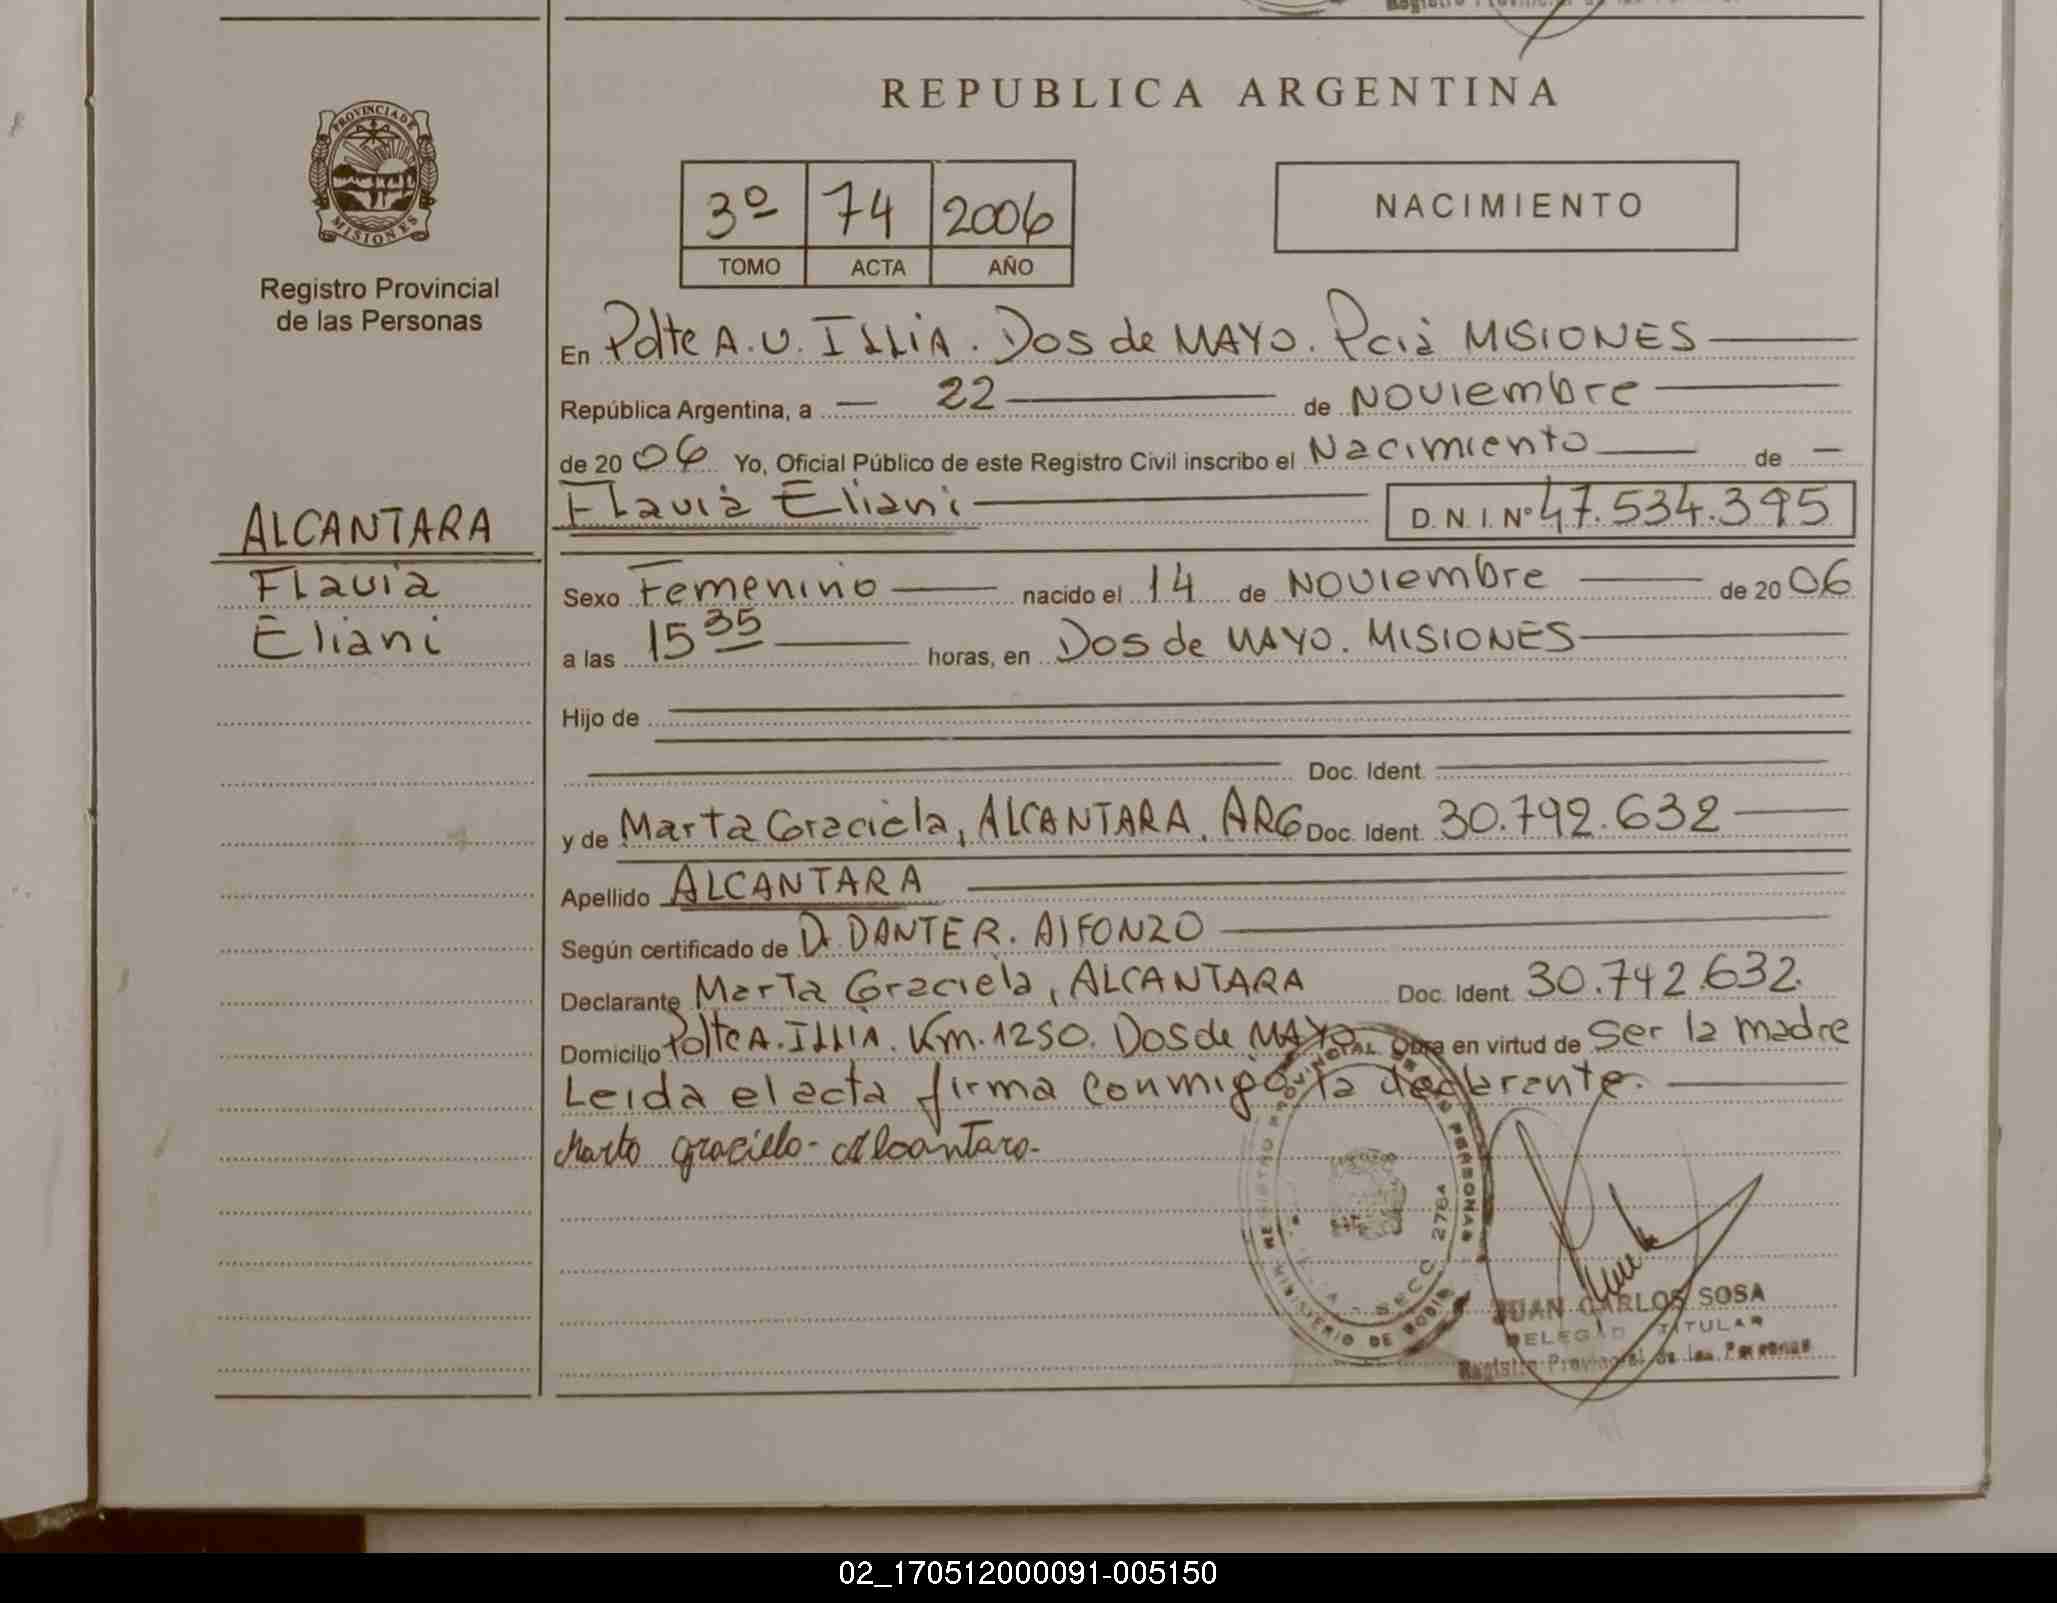 REPUBLICA ARGENTINA
PROVINCIA DE MISIONES
Registro Provincial
de las Personas
3º 74 2006
TOMO ACTA AÑO
NACIMIENTO
En Pdte A.U. ILLIA. Dos de MAYO. Pcia MISIONES
República Argentina, a — 22 de Noviembre
de 2006 Yo, Oficial Público de este Registro Civil inscribo el Nacimiento de —
Flavia Eliani D. N. I. Nº 47.534.395
ALCANTARA
Flavia
Eliani
Sexo Femenino nacido el 14 de Noviembre de 2006
a las 15 35 horas, en Dos de MAYO. MISIONES
Hijo de
Doc. Ident.
y de Marta Graciela, ALCANTARA. ARG Doc. Ident. 30.792.632
Apellido ALCANTARA
Según certificado de Dr. DANTE R. AlFONZO
Declarante Marta Graciela, ALCANTARA Doc. Ident. 30.742.632.
Domicilio Pdte A. ILLIA. Km. 1250. Dos de MAYO Obra en virtud de ser la madre
Leida el acta firma conmigo la declarante.
Marta graciela - Alcantara -
REGISTRO PROVINCIAL DE LAS PERSONAS
SECC 2764
MINISTERIO DE GOBIE
JUAN CARLOS SOSA
DELEGADO TITULAR
Registro Provincial de las Personas
02_170512000091-005150